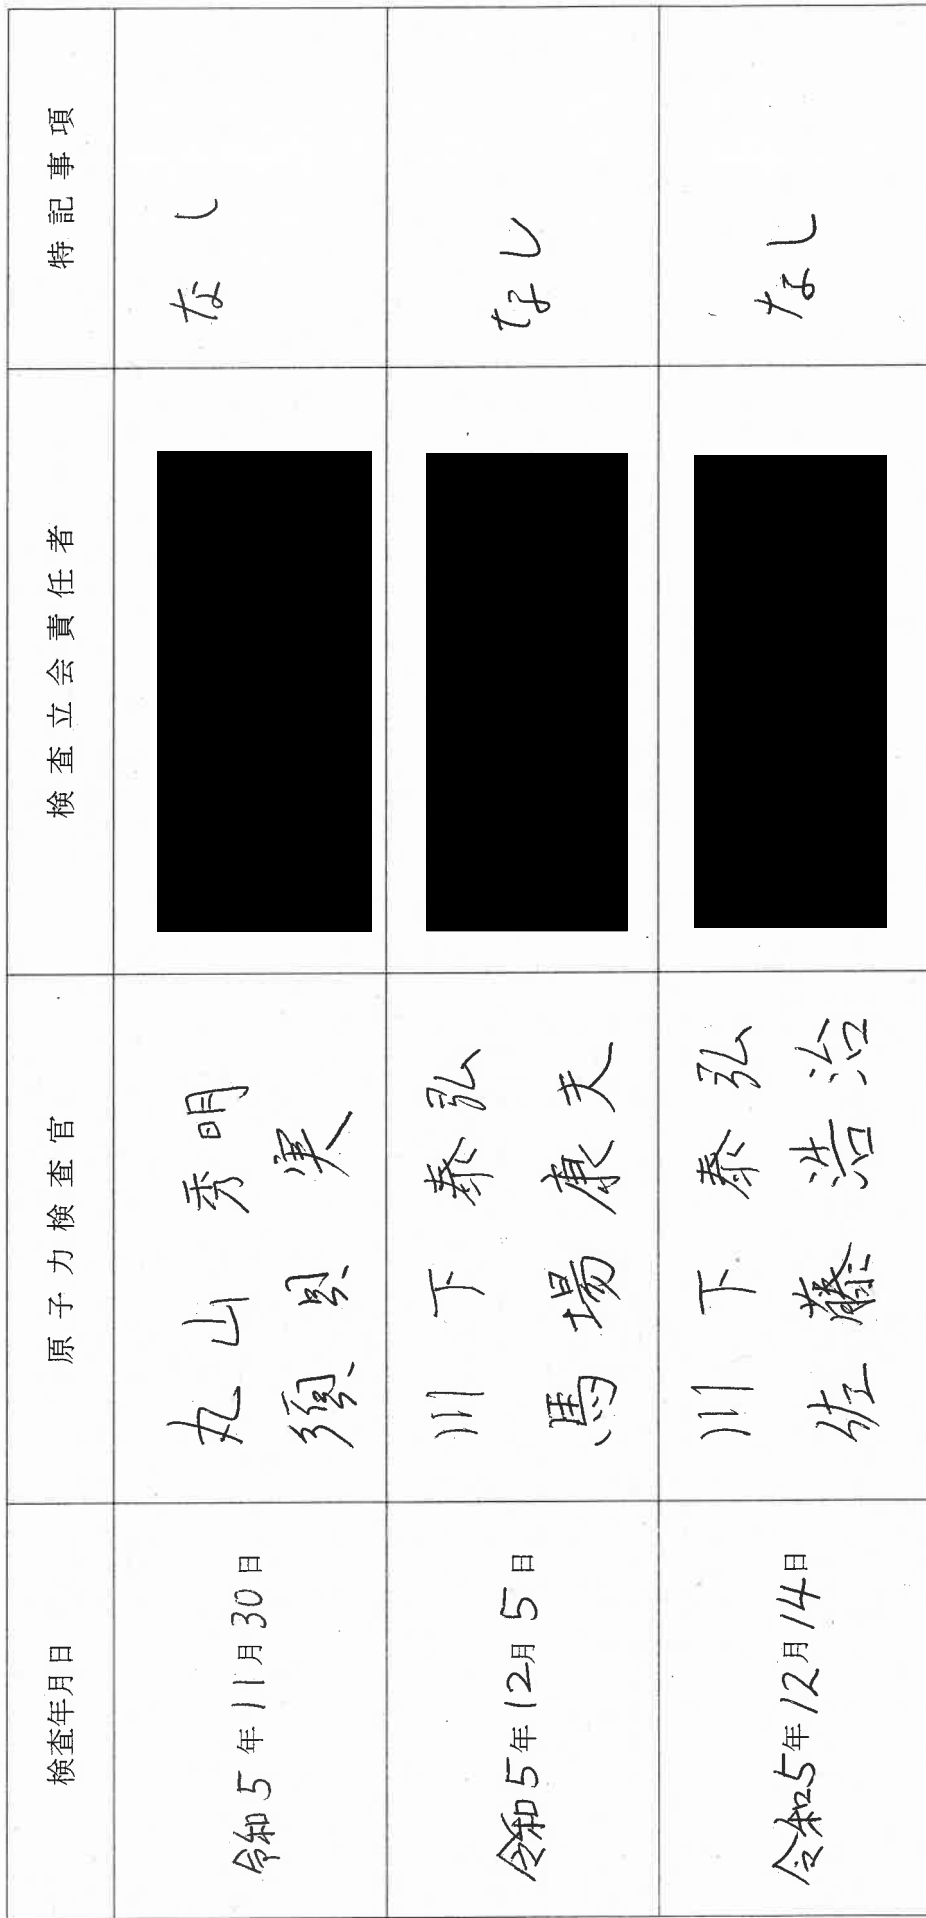 検査年月日 原子力検査官 検査立会責任者 特記事項
令和5年11月30日 丸山 秀明 なし
須貝 実
令和5年12月5日 川下 泰弘 なし
馬場 康夫
令和5年12月14日 川下 泰弘 なし
佐藤 浩治